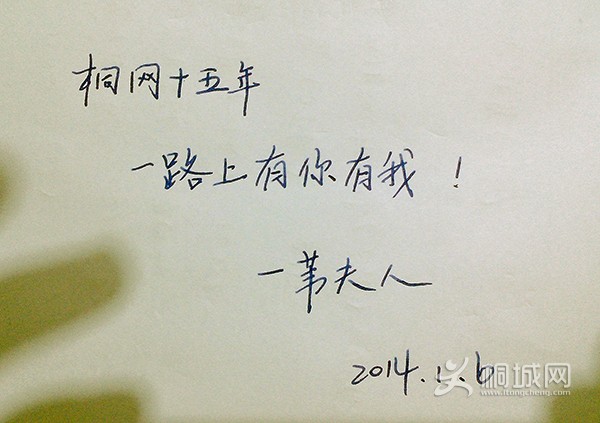 桐网十五年
一路上有你有我！
一苇夫人
2014.1.6
桐城网
www.itongcheng.com